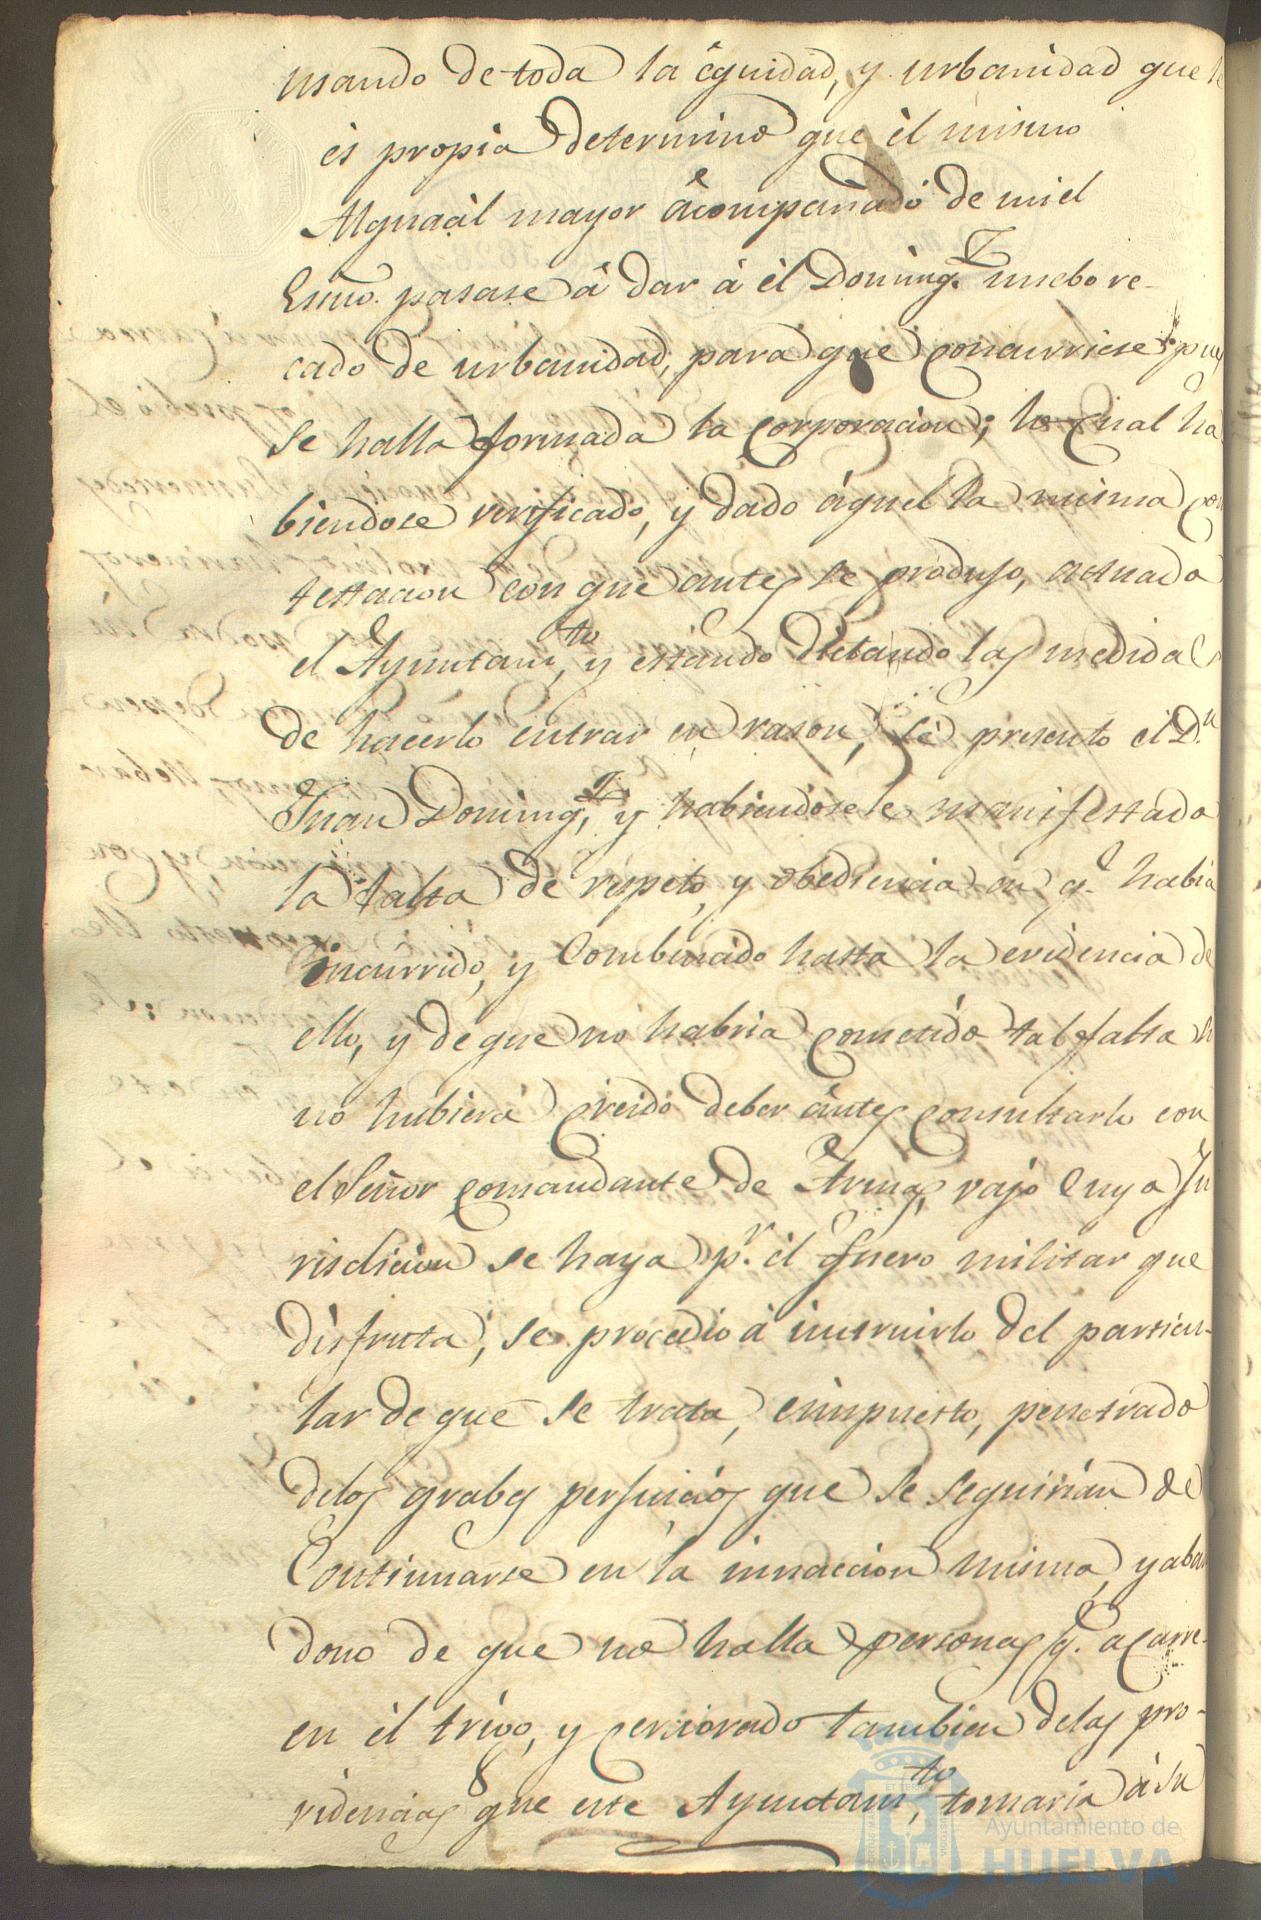 usando de toda la êquidad, y urbanidad que le
es propia determinó que èl mismo
Alguacìl mayor âcompañado de mi el
Essno. pasase â dar á èl Doming.z nuebo re-
cado de urbanidad, para que concurriese pues
se halla formada la Corporacion; lo Cual ha
biendose verificado, y dado áquel la misma con
testacion con que antes se produjo, actuado
el Ayuntam.to y estando dictando las medidas
de hacerlo entrar en rason, se presento el D.n
Juan Doming.z y habiendosele manifestado
la falta de respeto, y obediencia en q.e habia
incurrido, y Combencido hasta la evidencia de
ello, y de que no habria cometido tal falta si
no hubiera creido deber ântes consultarlo con
el Señor comandante de Armas, vajo Cuya Ju
risdicion se haya p.r èl fuero militar que
disfruta, se procedio á instruirlo del particu-
lar de que se trata, è impuesto, penetrado
delos grabes perjuicios que se seguirián de
Continuarse en la innaccion misma, y aban
dono de que no halla personas q.e acarre-
en èl trigo, y cerciorado tambien delas pro-
videncias que este Ayuntam.to tomaria á su
Ayuntamiento de
HUELVA